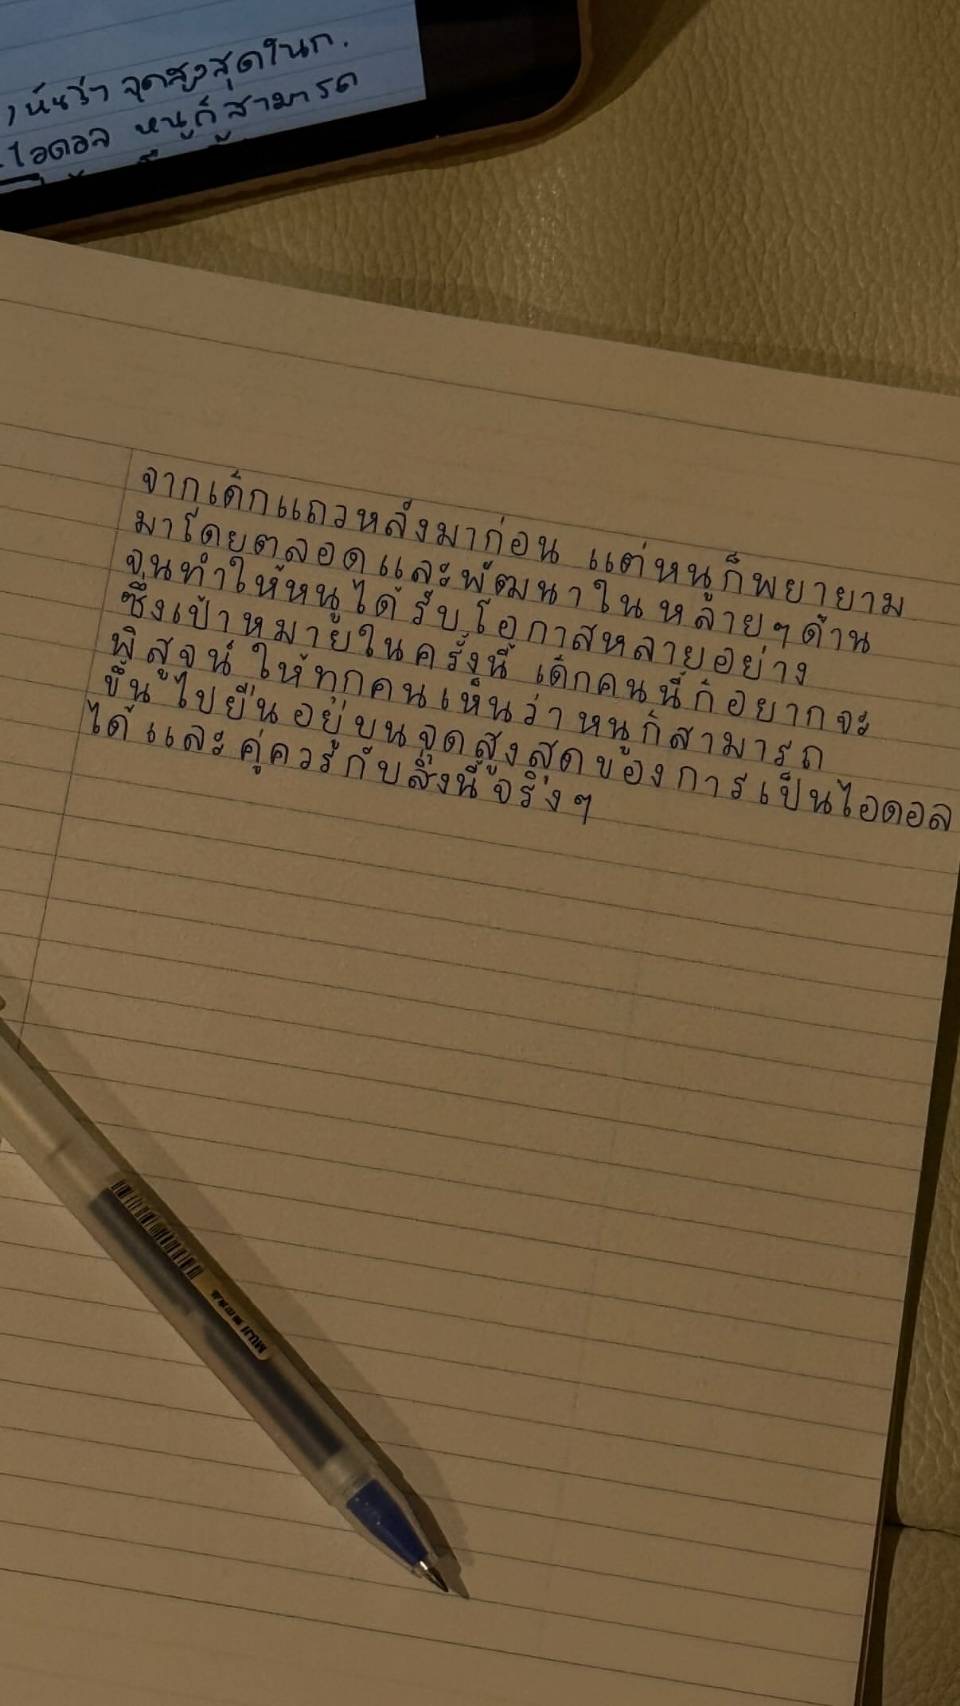 เห็นว่า จุดสูงสุดในก.
ไอดอล หนูก็สามารถ
จากเด็กแถวหลังมาก่อน แต่หนูก็พยายาม
มาโดยตลอดและพัฒนาในหลายๆด้าน
จนทำให้หนูได้รับโอกาสหลายอย่าง
ซึ่งเป้าหมายในครั้งนี้ เด็กคนนี้ก็อยากจะ
พิสูจน์ให้ทุกคนเห็นว่าหนูก็สามารถ
ขึ้นไปยืนอยู่บนจุดสูงสุดของการเป็นไอดอล
ได้และคู่ควรกับสิ่งนี้จริงๆ
MUJI 無印良品